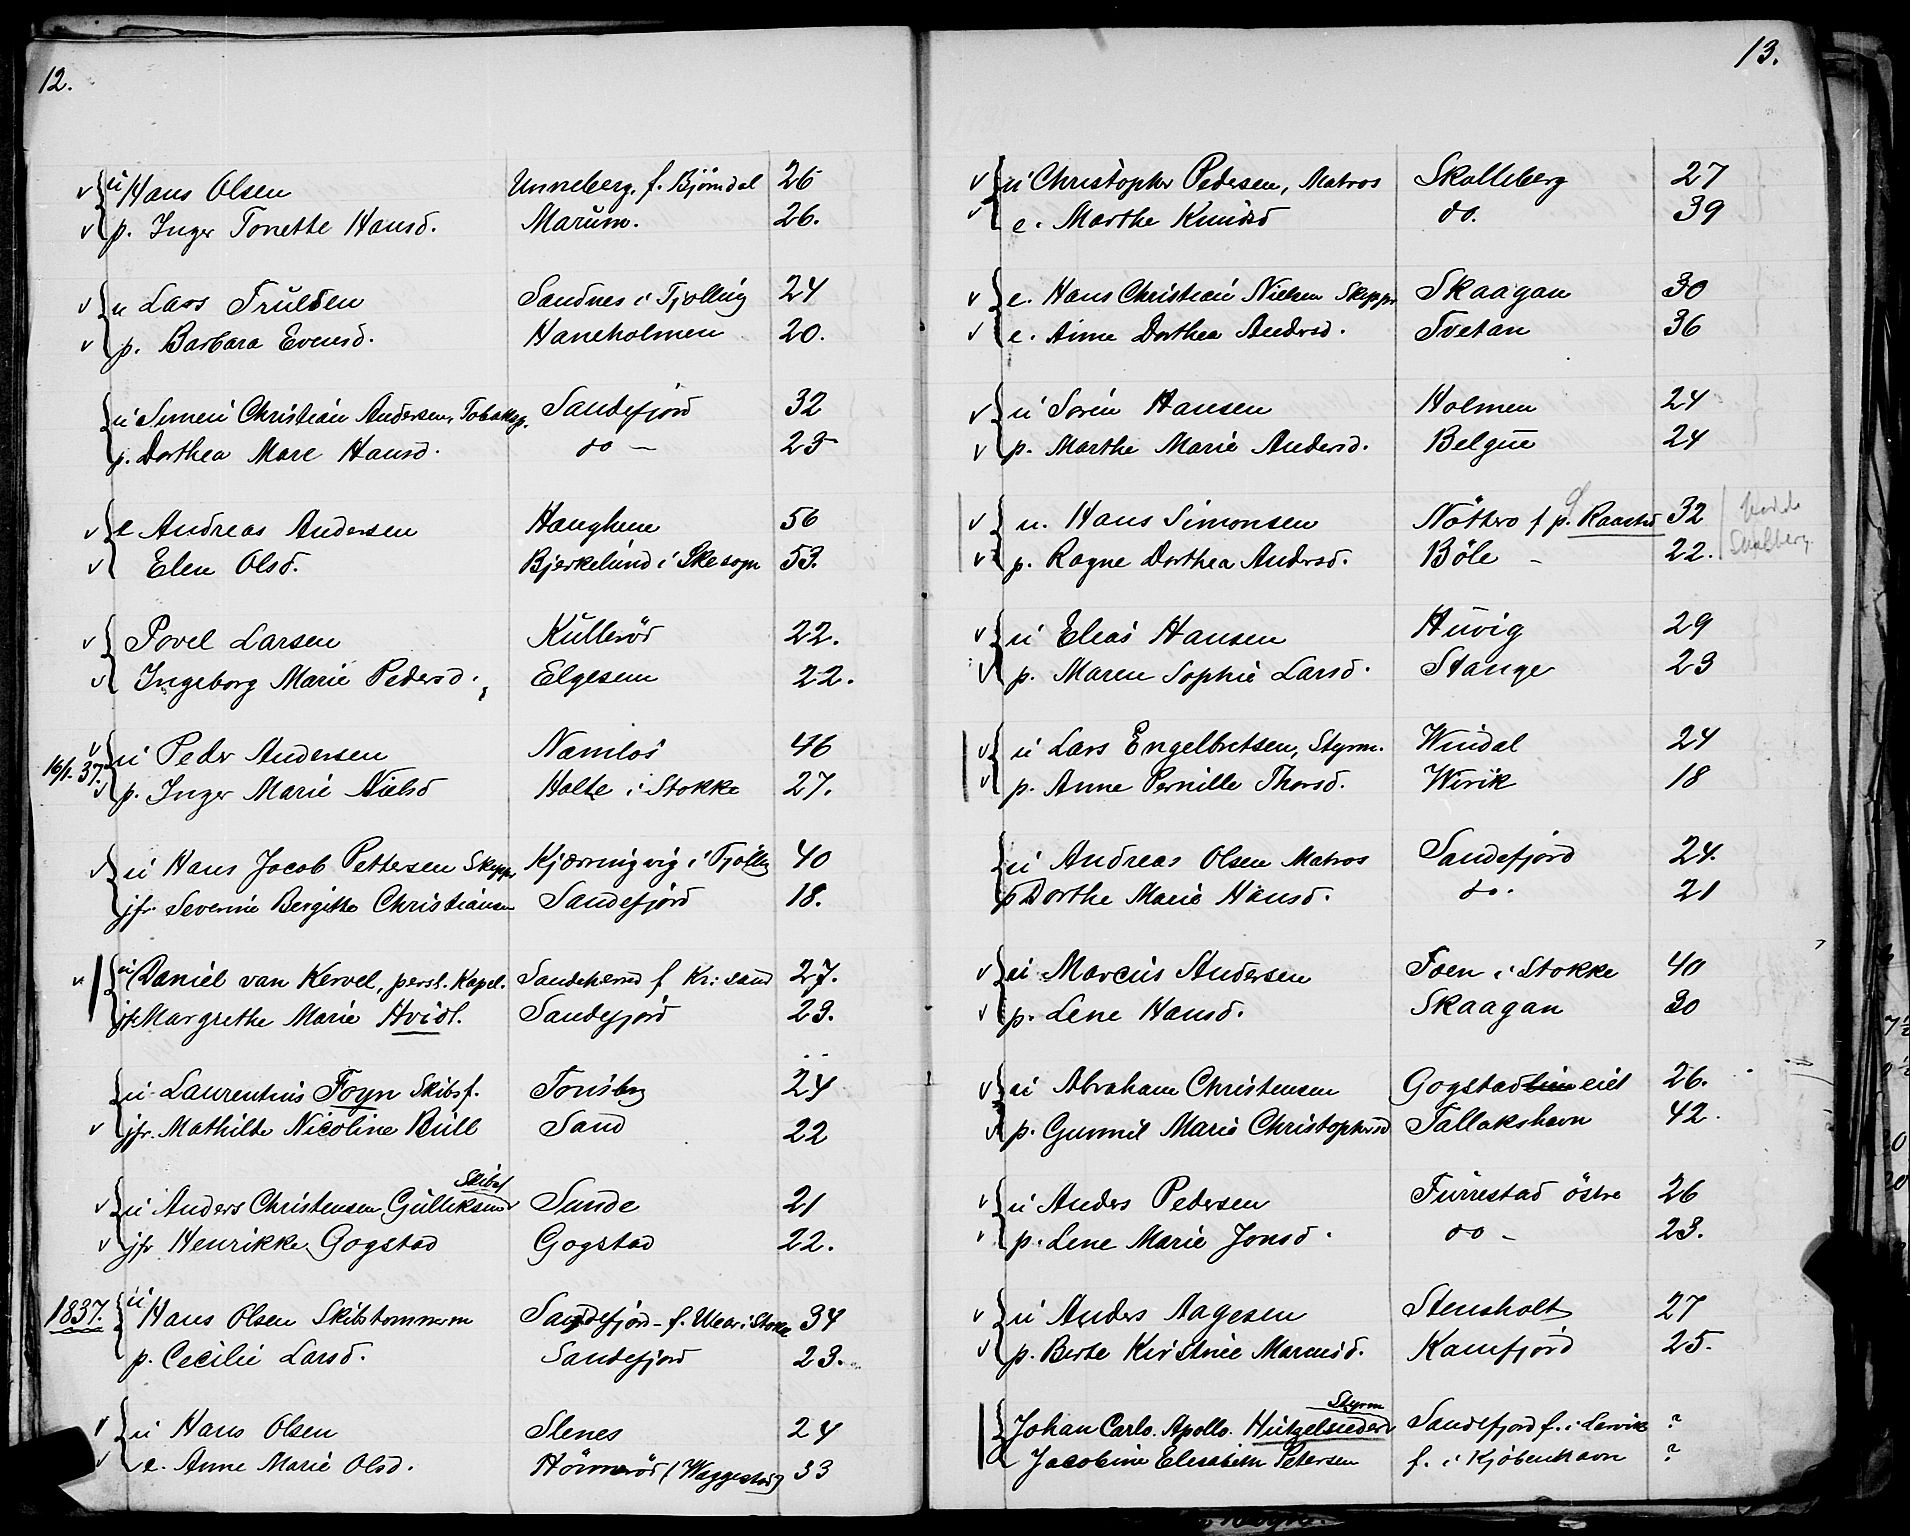 12.
v u Hans Olsen Unneberg, f. Bjørndal 26
v p. Inger Tonette Hansd. Marum. 26.
v u Lars Trulsen Sandnes i Tjølling 24
v p. Barbara Evensd. Haneholmen 20.
u Simen Christian Andersen, Sandefjord 32
p. Dorthea Mare Hansd. do — 25
v e Andreas Andersen Haughem 56
v Elen Olsd. Bjerkelund i Skesogn 53.
v Povel Larsen Kullerød 22.
v Ingeborg Marie Pedersd. Elgesem 22.
16/1. 37. v u Peder Andersen Namløs 46
v p. Inger Marie Nielsd Holte i Stokke 27.
v u Hans Jacob Pettersen Skipper Kjærringvig i Tjølling 40
jfr. Severine Bergitte Christiansen Sandefjord 18.
v u Daniel van Kervel, persl. Kapel. Sandeherred f Kr: sand 27.
jfr Margrethe Marie Hvidt. Sandefjord 23.
u Laurentius Foyn Skibsf. Tønsbg 24
v jfr. Mathilde Nicoline Bull Sand 22
Skibsf
v u Anders Christensen Gulliksen Sande 21
v jfr Henrikke Gogstad Gogstad 22.
1837. u Hans Olsen Skibstømmerm Sandefjord - f. Wear i Stokke 34
p. Cecilie Larsd. Sandefjord 23.
v u Hans Olsen Slenes 24
v e. Anne Marie Olsd. Hönnerød (Waggestad) 33
13.
v u Christopher Pedersen, Matros Skalleberg 27
v e. Marthe Knudsd do. 39
v e. Hans Christian Nielsen Skipper Skaagan 30
v e. Anne Dorthea Andersd. Tvetan 36
v u Soren Hansen Holmen 24
v p. Marthe Marie Andersd. Belgue 24
v u. Hans Simonsen Nöttero f p. Raastad 32
v p. Ragne Dorthea Andersd. Böle - 22.
v u Elias Hansen Huvig 29
v p. Maren Sophie Larsd. Stange 23
v u Lars Engelbretsen, Styrm. Windal 24
v p. Anne Pernille Thorsd. Wirik 18
u Andreas Olsen Matros Sandefjord 24.
p Dorthe Marie Hansd. do. 21
v u Marcus Andersen Foen i Stokke 40
v p. Lene Hansd. Skaagan 30
v u Abraham Christensen Gogstad eiet 26.
v p. Gunnil Marie Christophersd Tallakshavn 42.
v u Anders Pedersen Furrestad östre 26
v p. Lene Marie Jonsd. do - 23.
v u Anders Aagesen Stensholt 27
v p. Berte Kirstine Marcusd. Kamfjord 25.
Styrm
Johan Carlo. Apollo. Hutzelsieder Sandefjord f. i Larvik ?
Jacobine Elisabeth Petersen f. i Kjøbenhavn ?